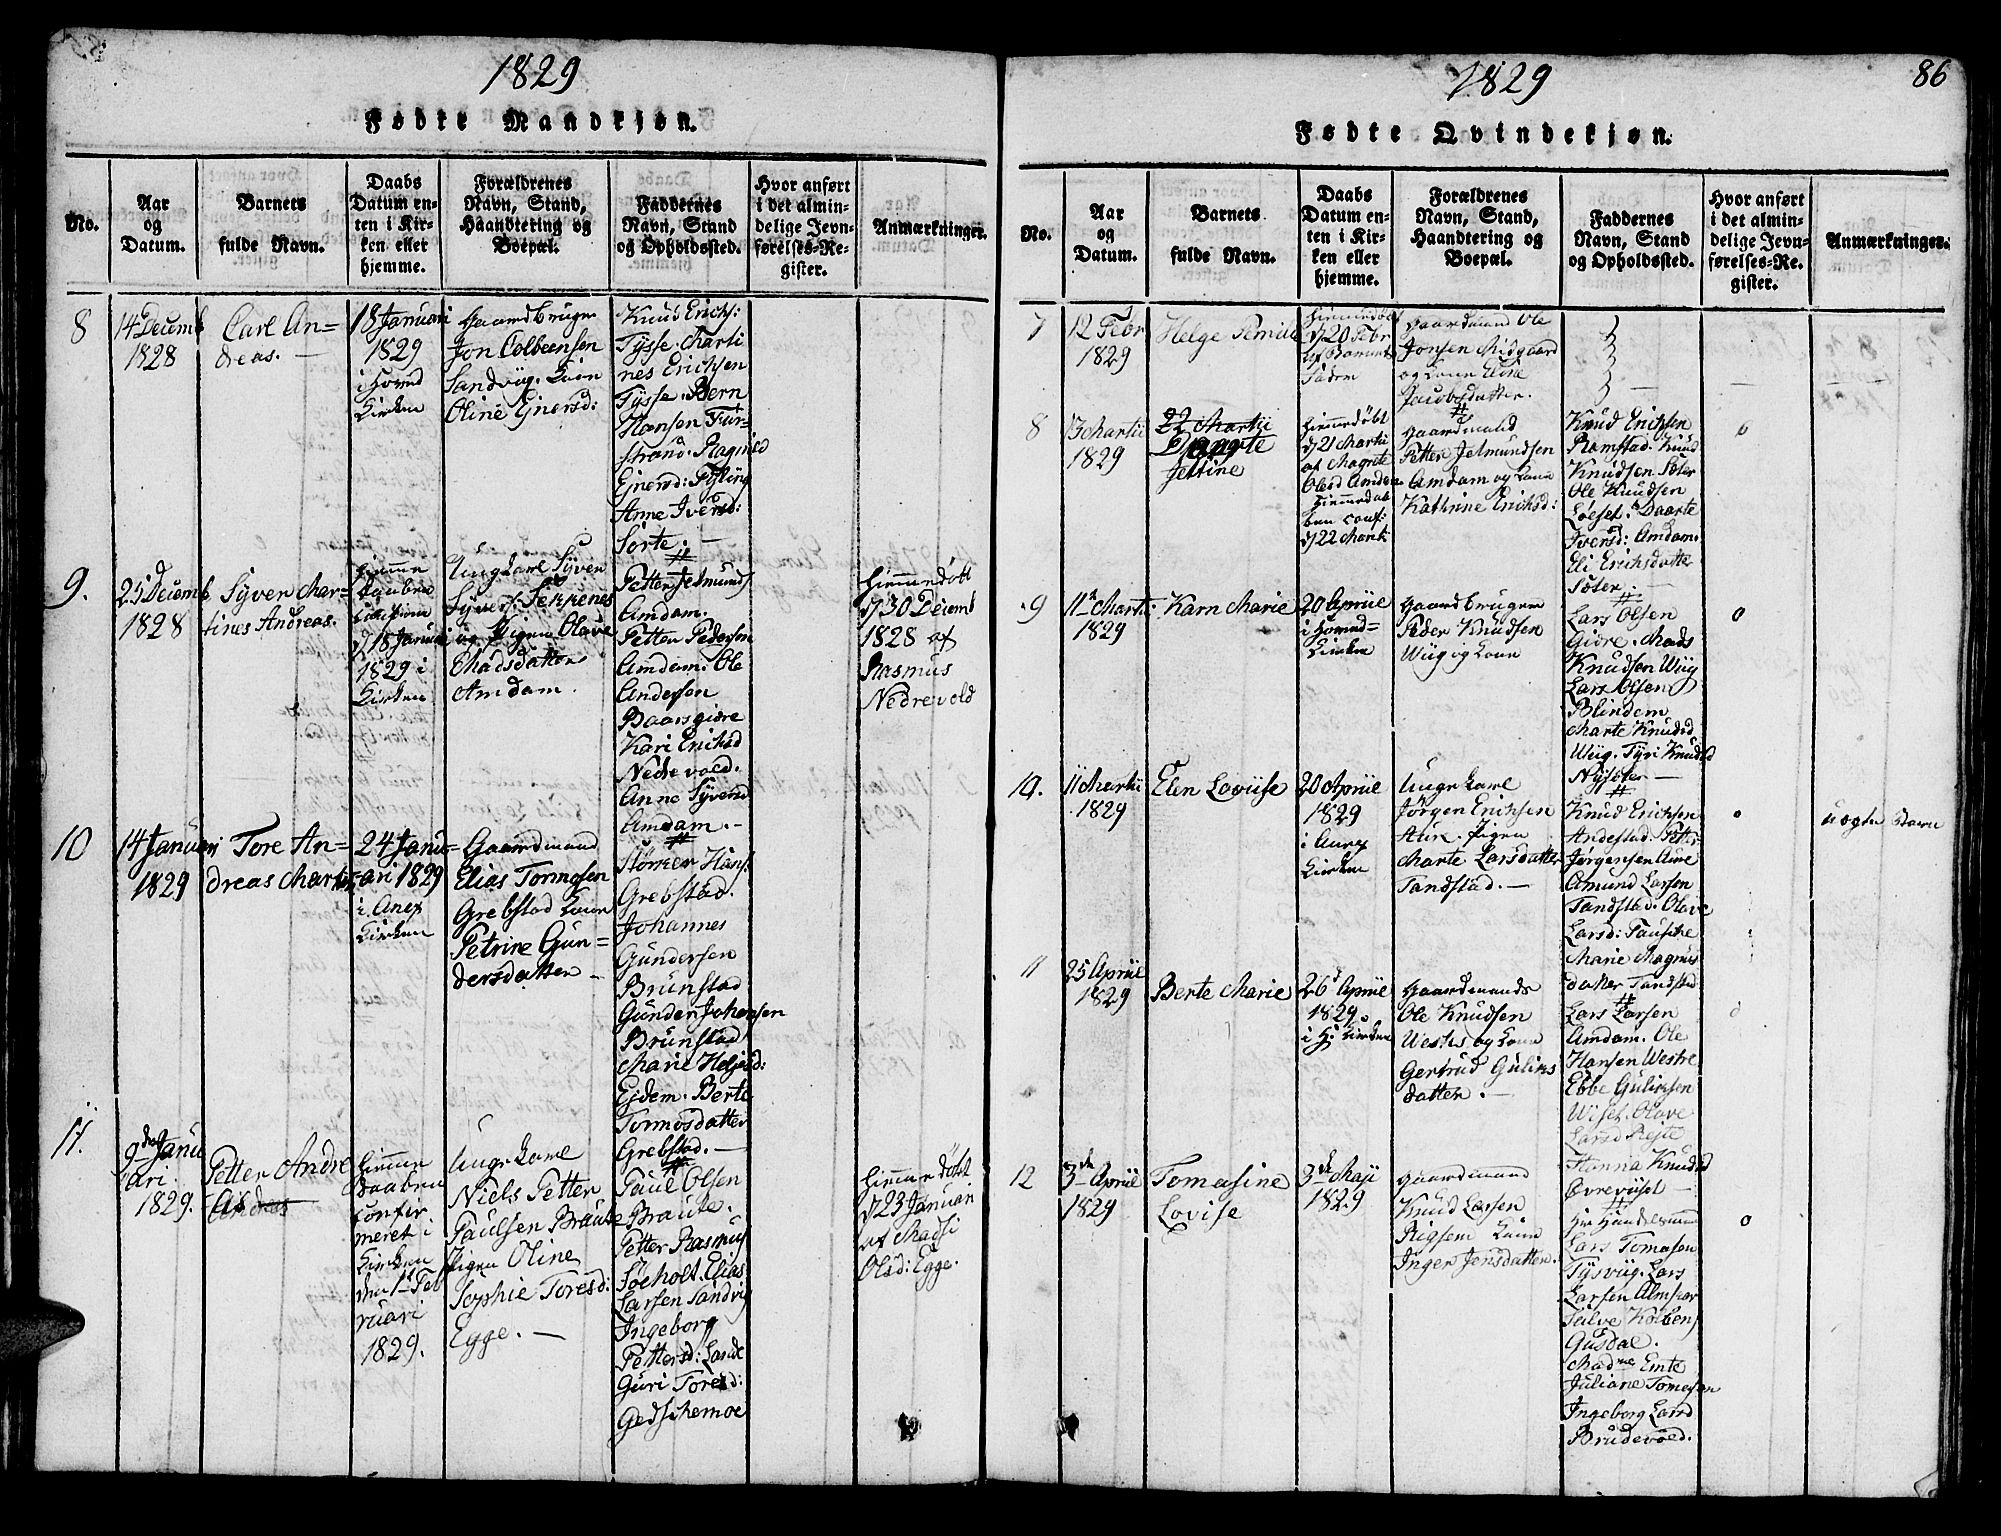 1829
Fødte Mandkjøn.
No.
Aar
og
Datum.
Barnets
fulde Navn.
Daabs
Datum en-
ten i Kir-
ken eller
hjemme.
Forældrenes
Navn, Stand,
Haandtering og
Boepæl.
Faddernes
Navn, Stand
og Opholdssted.
Hvor anført
i det almin-
delige Jevn-
førelses-Re-
gister.
Anmærkninger.
8
14 Decemb
1828
Carl An=
dreas. —
18 Januari
1829
i Hoved
Kirken
Gaardbruger
Jon Colbeensen
Sandvüg. Kone
Oline Ejnersd:
Knud Erichs:
Tysse. Marti
nes Erichsen
Tysse. Bern
Hansen Fur-
strand. Ragnild
Ejnersd:
Anne Iversd:
Sorte. —
9.
25 Decemb
1828
Syver Mar=
tines Andreas.
hiemme
Daaben
d/18 Januari
1829 i
Kirken
Ungkarl Syver
Syvers. Tekkenes
og Pigen Olave
Madsdatter
Amdam.
Petter Jelmunds
Amdam.
Petter Pedersen
Amdam. Ole
Andersen
Baarsgiøre
Kari Ericksd
Nedrevold.
Anne Syversd
Amdam. —
Hiemmedøbt
d/30 Decemb
1828 af
Rasmus
Nedrevold
10
14 Januari
1829
Tore An=
dreas Martin
24 Janu=
ari 1829
i Anex
Kirken
Gaardmand
Elias Tormosen
Grebstad Kone
Petrine Gun=
dersdatter —
Størker Hans:
Grebstad.
Johannes
Gundersen
Brunstad
Gunder Johansen
Brunstad
Marie Heljesd:
Ejdem. Berte
Tormosdatter
Grebstad. —
11.
9de Janu
ari.
1829.
Petter Andre
as
hiemme
Daaben
confir
meret i
Kirken
den 1ste Feb
ruari
1829.
Ungkarl
Niels Petter
Paulsen Braute
Pigen Oline
Sophie Toresd:
Egge. —
Paul Olsen
Braute.
Petter Rasmus
Søeholt. Elias
Larsen Sandvig
Ingeborg
Pettersd: Lande
Guri Toresd:
Gedschemoe
Hiemmedøbt
d/23 Januari
af Madsi
Olsd: Egge.
1829
86
Fødte Qvindekjøn.
No.
Aar
og
Datum.
Barnets
fulde Navn.
Daabs
Datum en-
ten i Kir-
ken eller
hjemme.
Forældrenes
Navn, Stand,
Haandtering og
Boepæl.
Faddernes
Navn, Stand
og Opholdssted.
Hvor anført
i det almin-
delige Jevn-
førelses-Re-
gister.
Anmærkninger.
7
12 Febr
1829
Helge
Hiemmedøbt
d/20 Febr
af Barnets
Fadem
Gaardmand Ole
Jonsen Midgaard
og Kone Eline
Jacobsdatter.
8
13 Martii
1829
22 Martii
Jettine
Hiemmedøbt
d/21 Martii
af Magnte
Olesd Amdam
Hiemmedaa
ben conf:
d/22 Marti
Gaardmand
Petter Jelmundsen
Amdam og Kone
Kathrine Ericksd:
Knud Ericksen
Ramstad. Knud
Knudsen Søter
Ole Knudsen
Løeset. Daarte
Iversd: Amdam.
Eli Ericksdatte
Søter. —
o
9
11te Marti:
1829
Karn Marie
20 Apriie
i Hoved=
Kirken
Gaardbruger
Peder Knudsen
Wüg og Kone
Lars Olsen
Giøre. Mads
Knudsen Wüg
Lars Olsen
Blindem
Marte Knudsd
Wüg. Tyri Knudsd
Nysæter —
o
10.
11 Martii
1829
Elen Lovise
20 Apriie
1829
i Anex
Kirken
Ungkarl
Jørgen Ericksen
Aure. Pigen
Marte Larsdatter
Tandstad. —
Knud Ericksen
Andestad. Petter
Jørgensen Aure
Amund Larsen
Tandstad. Olave
Larsd: Tauschc
Marie Magnus
datter Tandstad
o
uægte Barn
11
25 Apriie
1829
Berte Marie
26d Apriie
1829
i H: Kirken
Gaardmands
Ole Knudsen
Westre og Kone
Gertrud Guliks
datter. —
Lars Larsen
Amdam. Ole
Hansen Westre
Ebbe Guliksen
Wiset. Olave
Larsd Rejte
Hanna Knudsd
Øvrevüset —
12
3de Apriie
1829
Tomasine
Lovise
3de Maji
1829
Gaardmand
Knud Larsen
Rigsem Kone
Inger Jonsdatter.
Hr Handelsmand
Lars Tomasen
Tysvüg. Lars
Larsen Almskar
Salve Kolbens
Gusdal.
Madme Emte
Juliane Tomasen
Ingeborg Larsd
Brudevold.
o